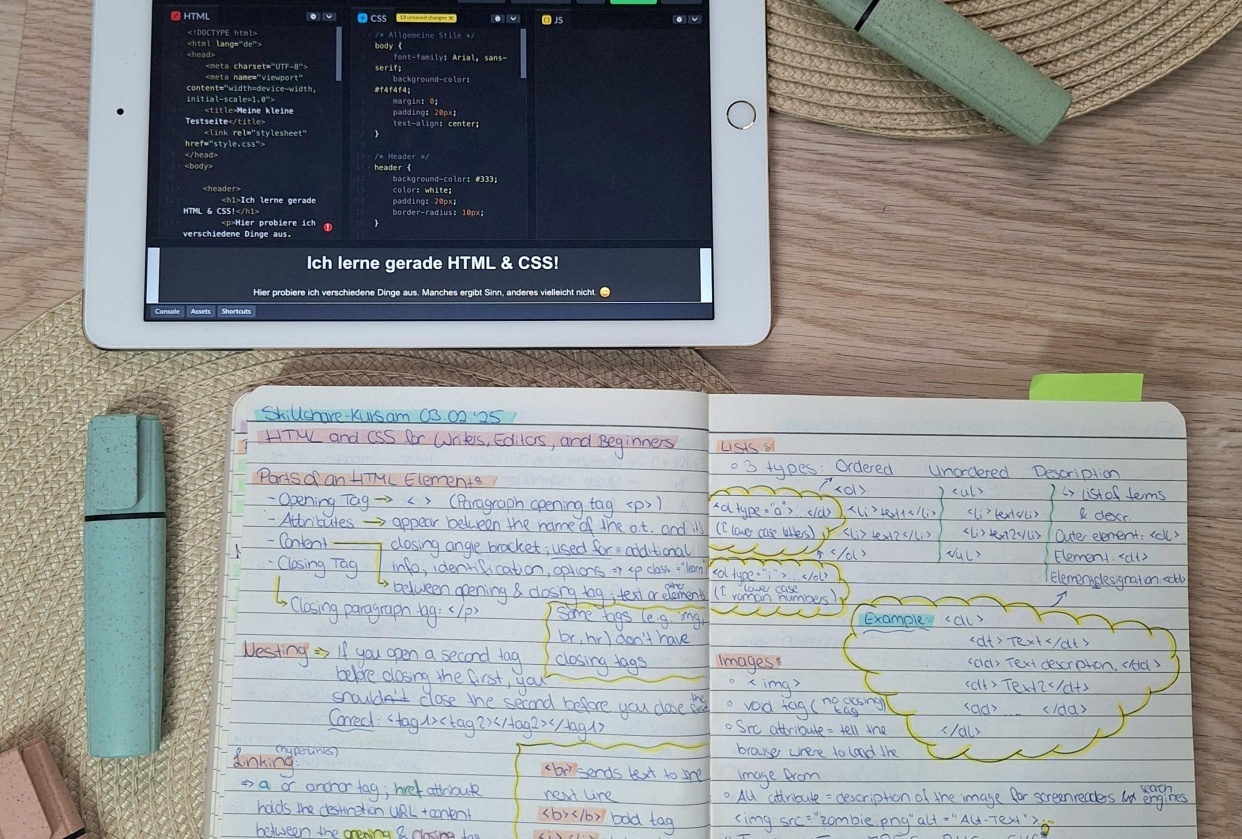 HTML
<!DOCTYPE html>
<html lang="de">
<head>
<meta charset="UTF-8">
<meta name="viewport"
content="width=device-width,
initial-scale=1.0">
<title>Meine kleine
Testseite</title>
<link rel="stylesheet"
href="style.css">
</head>
<body>
<header>
<h1>Ich lerne gerade
HTML & CSS!</h1>
<p>Hier probiere ich
verschiedene Dinge aus.
CSS
13 unsaved changes X
/* Allgemeine Stile */
body {
font-family: Arial, sans-
serif;
background-color:
#f4f4f4;
margin: 0;
padding: 20px;
text-align: center;
}
/* Header */
header {
background-color: #333;
color: white;
padding: 20px;
border-radius: 10px;
}
JS
Ich lerne gerade HTML & CSS!
Hier probiere ich verschiedene Dinge aus. Manches ergibt Sinn, anderes vielleicht nicht. 😄
Console Assets Shortcuts
Skillshare-Kurs am 03.02.'25
HTML and CSS for Writers, Editors, and Beginners
Parts of an HTML Element:
- Opening Tag → < > (Paragraph opening tag <p>)
- Attributes → appear between the name of the o.t. and it's
closing angle bracket; used for additional
info, identification, options → <p class="learn
- Content
between opening & closing tag; text or other elements
- Closing Tag
Closing paragraph tag: </p>
Some tags (e.g. img,
br, hr) don't have
closing tags
Nesting ⇒ If you open a second tag
before closing the first, you
should close the second before you close the
Correct: <tag1><tag2></tag2></tag1>
Linking: (hyperlinks)
⇒ a or anchor tag; href attribute
holds the destination URL + content
between the opening & closing tag
<br> sends text to the
next line
<b></b> bold tag
Lists:
° 3 types: Ordered Unordered Description
<ol>
<li>text1</li>
<li>text2</li>
</ol>
<ul>
<li>text</li>
<li>text2</li>
</ul>
↳ list of terms
& descr.
Outer element: <dl>
Element: <dt>
Elementdesignation: <dd>
<ol type="a">...</ol>
(I lower case letters)
<ol type="i">...</ol>
(I lower case roman numbers)
Example: <dl>
<dt> Text </dt>
<dd> Text description. </dd>
<dt> Text2 </dt>
<dd> ... </dd>
</dl>
Images:
° <img>
° void tag (no closing tag)
° Src attribute = tell the
browser where to load the
image from
° Alt attribute = description of the image for screenreaders & search engines
<img src="zombie.png" alt="Alt-Text">